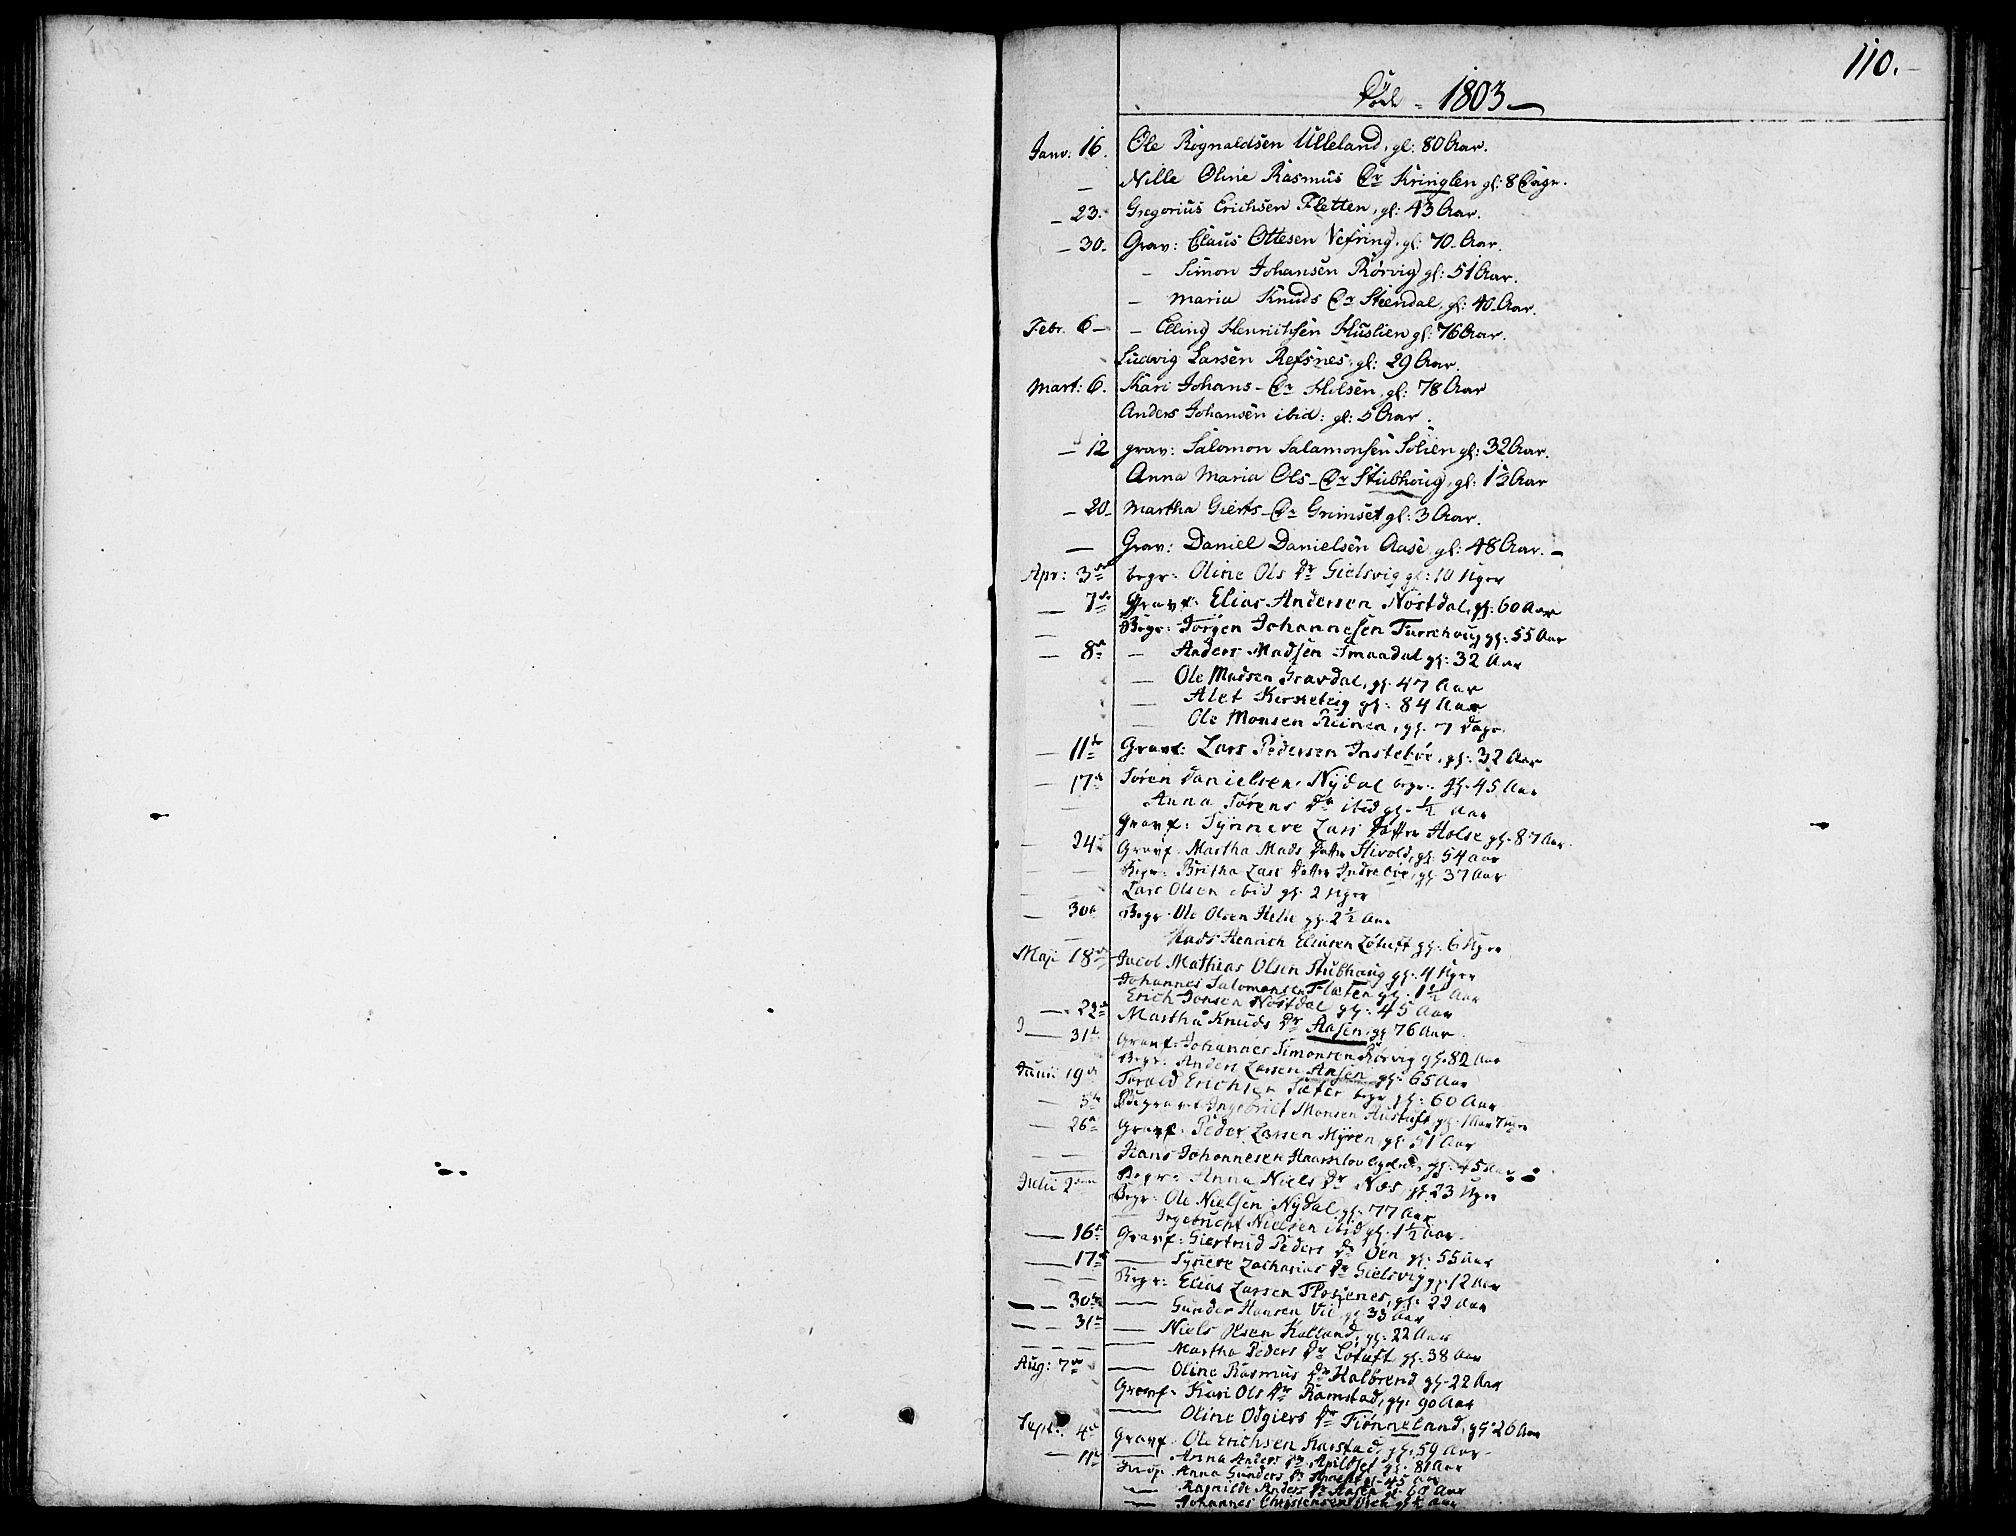 110.
Døde - 1803
Janv: 16. Ole Rognaldsen Ulleland, gl: 80 Aar.
— Nille Oline Rasmus Dr Kringlen gl: 8 Dage.
— 23. Gregorius Erichsen Fletten, gl: 43 Aar.
— 30. Grav: Claus Ottesen Vefring, gl: 70 Aar.
— Simon Johansen Rørvig gl: 51 Aar.
— Maria Knuds Dr Steendal, gl: 40 Aar.
Febr. 6 — Elling Henrichsen Huslien gl: 76 Aar.
Ludvig Larsen Refsnes, gl: 29 Aar.
Mart: 6. Kari Johans-Dr Hilsen, gl: 78 Aar
Anders Johansen ibid: gl: 5 Aar.
— 12 grav: Salomon Salamonsen Solien gl: 32 Aar.
Anna Maria Ols-Dr Stubhoug, gl: 1½ Aar
— 20 Martha Gierts-Dr Grimset gl: 3 Aar.
— Grav: Daniel Danielsen Aase gl: 48 Aar. —
Apr: 3 begr: Oline Ols Dr Gielsvig gl: 10 Uger
— 7 Gravf: Elias Andersen Nøstdal, gl: 60 Aar
— Begr: Jørgen Johannesen gl: 55 Aar
— 8 — Anders Madsen Smaadal gl: 32 Aar
— Ole Madsen Gravdal, gl. 47 Aar
— Alet gl: 84 Aar
— Ole Monsen gl. 7 Dage
— 11 Gravf: Lars Pedersen Instebøe, gl: 32 Aar
— 17 Søren Danielsen Nydal begr: gl. 45 Aar
— Anna Sørens Dr ibid gl. ½ Aar
Gravf: Synneve Lars Datter Holse gl. 87 Aar.
— 24 Gravf: Martha Mads Datter Hivold, gl: 54 aar
— Begr: Britha Lars Datter Indrebøe, gl. 37 Aar
— Lars Olsen ibid gl. 2 Uger
— 30 Begr. Ole Olsen Helle gl. 2½ Aar
— Mads Henrich Eliasen Løtuft gl. 6 Uger
Maji 18 Jacob Mathias Olsen Stubhaug gl. 4 Uger
Johannes Salomonsen Flaten gl. 1½ Aar
Erich Jonsen Nøstdal gl. 45 Aar
— 22 Martha Knuds Dr Aasen, gl 76 Aar
— 31 Gravf: Johannes Simonsen Rørvig gl. 82 Aar
Begr: Anders Larsen Aasen gl. 65 Aar
Junii 19 Torald Erichsen Sæter begr gl: 60 Aar
Begravet Ingebrict Monsen gl. 1 Aar 7 Uger
— 26 Gravf: Peder Larsen Myren, gl. 51 Aar
— Hans Johannesen gl. 45 Aar
Julii 2 Begr: Anna Niels Dr Næs gl. 23 Uger
Begr: Ole Nielsen Nydal gl. 77 Aar
— Ingebricht Nielsen ibid gl. 1½ Aar.
— 16 Gravf: Giertrud Peders Dr Øen gl. 55 Aar
— 17 — Synneve Zacharias Dr Gielsvig gl. 12 Aar
— Begr: Elias Larsen gl. 22 Aar
— 30 — Gunder Hansen Vie, gl. 33 Aar
— 31 — Niels Olsen Kalland, gl. 22 Aar
— Martha Peders Dr Løtuft gl. 38 Aar
Aug: 7 — Oline Rasmus Dr Halbrend gl. 22 Aar
Gravf: Kari Ols Dr Ramstad, gl. 90 Aar
— Oline Odgiers Dr Tiønneland, gl. 26 Aar
Sept: 4 Gravf. Ole Erichsen Karstad, gl. 59 Aar
— 11 — Anna Anders Dr gl. 81 Aar
Anna Gunders Dr gl. 45 Aar
— Ragnilde Anders Dr Aasen gl. 60 Aar
— Johannes Christensen gl. ½ Aar